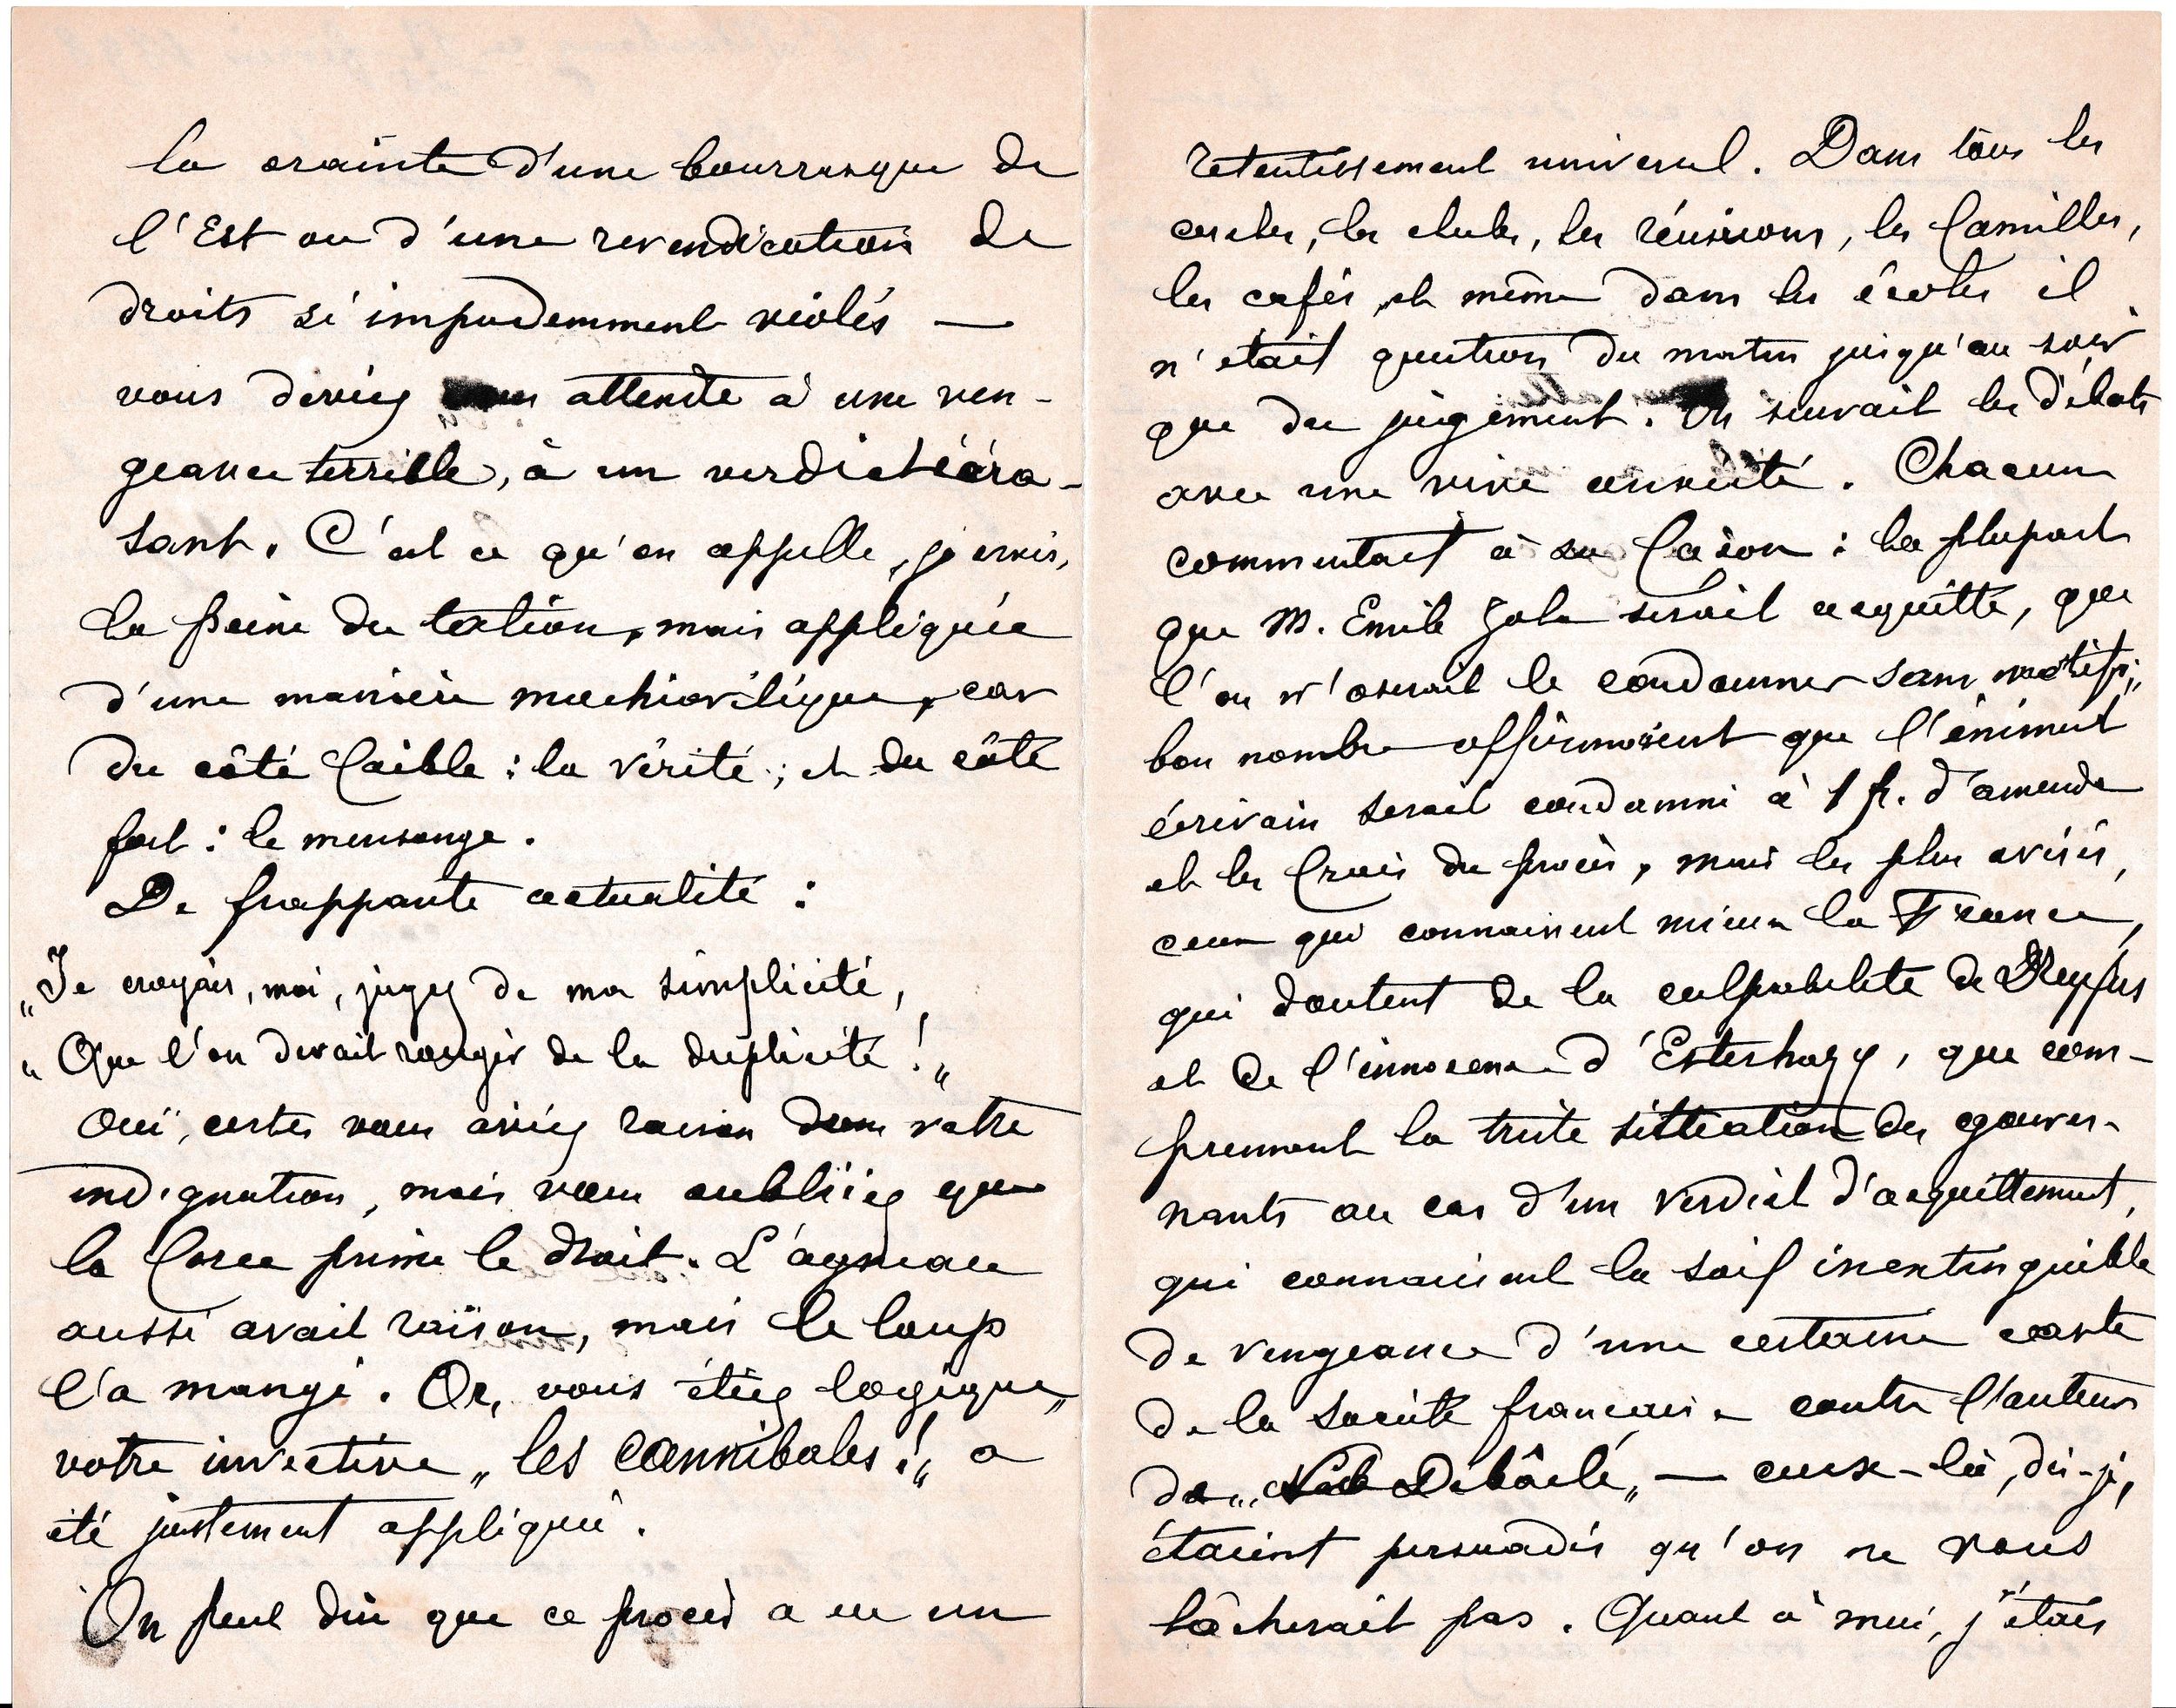 la crainte d'une bourrasque de
l'Est ou d'une revendication de
droits si impudemment violés —
vous deviez attendre à une ven-
geance terrible, à un verdict écra-
sant. C'est ce qu'on appelle, je crois,
la peine du talion, mais appliquée
d'une manière machiavélique, car
du côté faible : la vérité ; et du côté
fort : le mensonge.
De frappante actualité :
„Je croyais, moi, jugez de ma simplicité,
„Que l'on devait rougir de la duplicité !„
Oui, certes vous aviez raison dans votre
indignation, mais vous oubliiez que
la force prime le droit. L'agneau
aussi avait raison, mais le loup
l'a mangé. Or, vous étiez logique,
votre invective „les cannibales !„ a
été justement appliqué.
On peut dire que ce procès a eu un
retentissement universel. Dans tous les
cercles, les clubs, les réunions, les familles,
les cafés et même dans les écoles il
n'était question du matin jusqu'au soir
que du jugement. On suivait les débats
avec une vive curiosité. Chacun
commentait à sa façon : la plupart
que M. Emile Zola serait acquitté, que
l'on n'oserait le condamner sans motifs;
bon nombre affirmaient que l'éminent
écrivain serait condamné à 1 fr. d'amende
et les frais du procès, mais les plus avisés,
ceux qui connaissent mieux la France,
qui doutent de la culpabilité de Dreyfus
et de l'innocence d'Esterhazy, que com-
prennent la triste sittuation des gouver-
nants au cas d'un verdict d'acquittement,
qui connaissent la soif inextinguible
de vengeance d'une certaine caste
de la société française contre l'auteur
de „ Débâcle„ — ceux-là, dis-je,
étaient persuadés qu'on ne vous
lâcherait pas. Quant à moi, j'étais